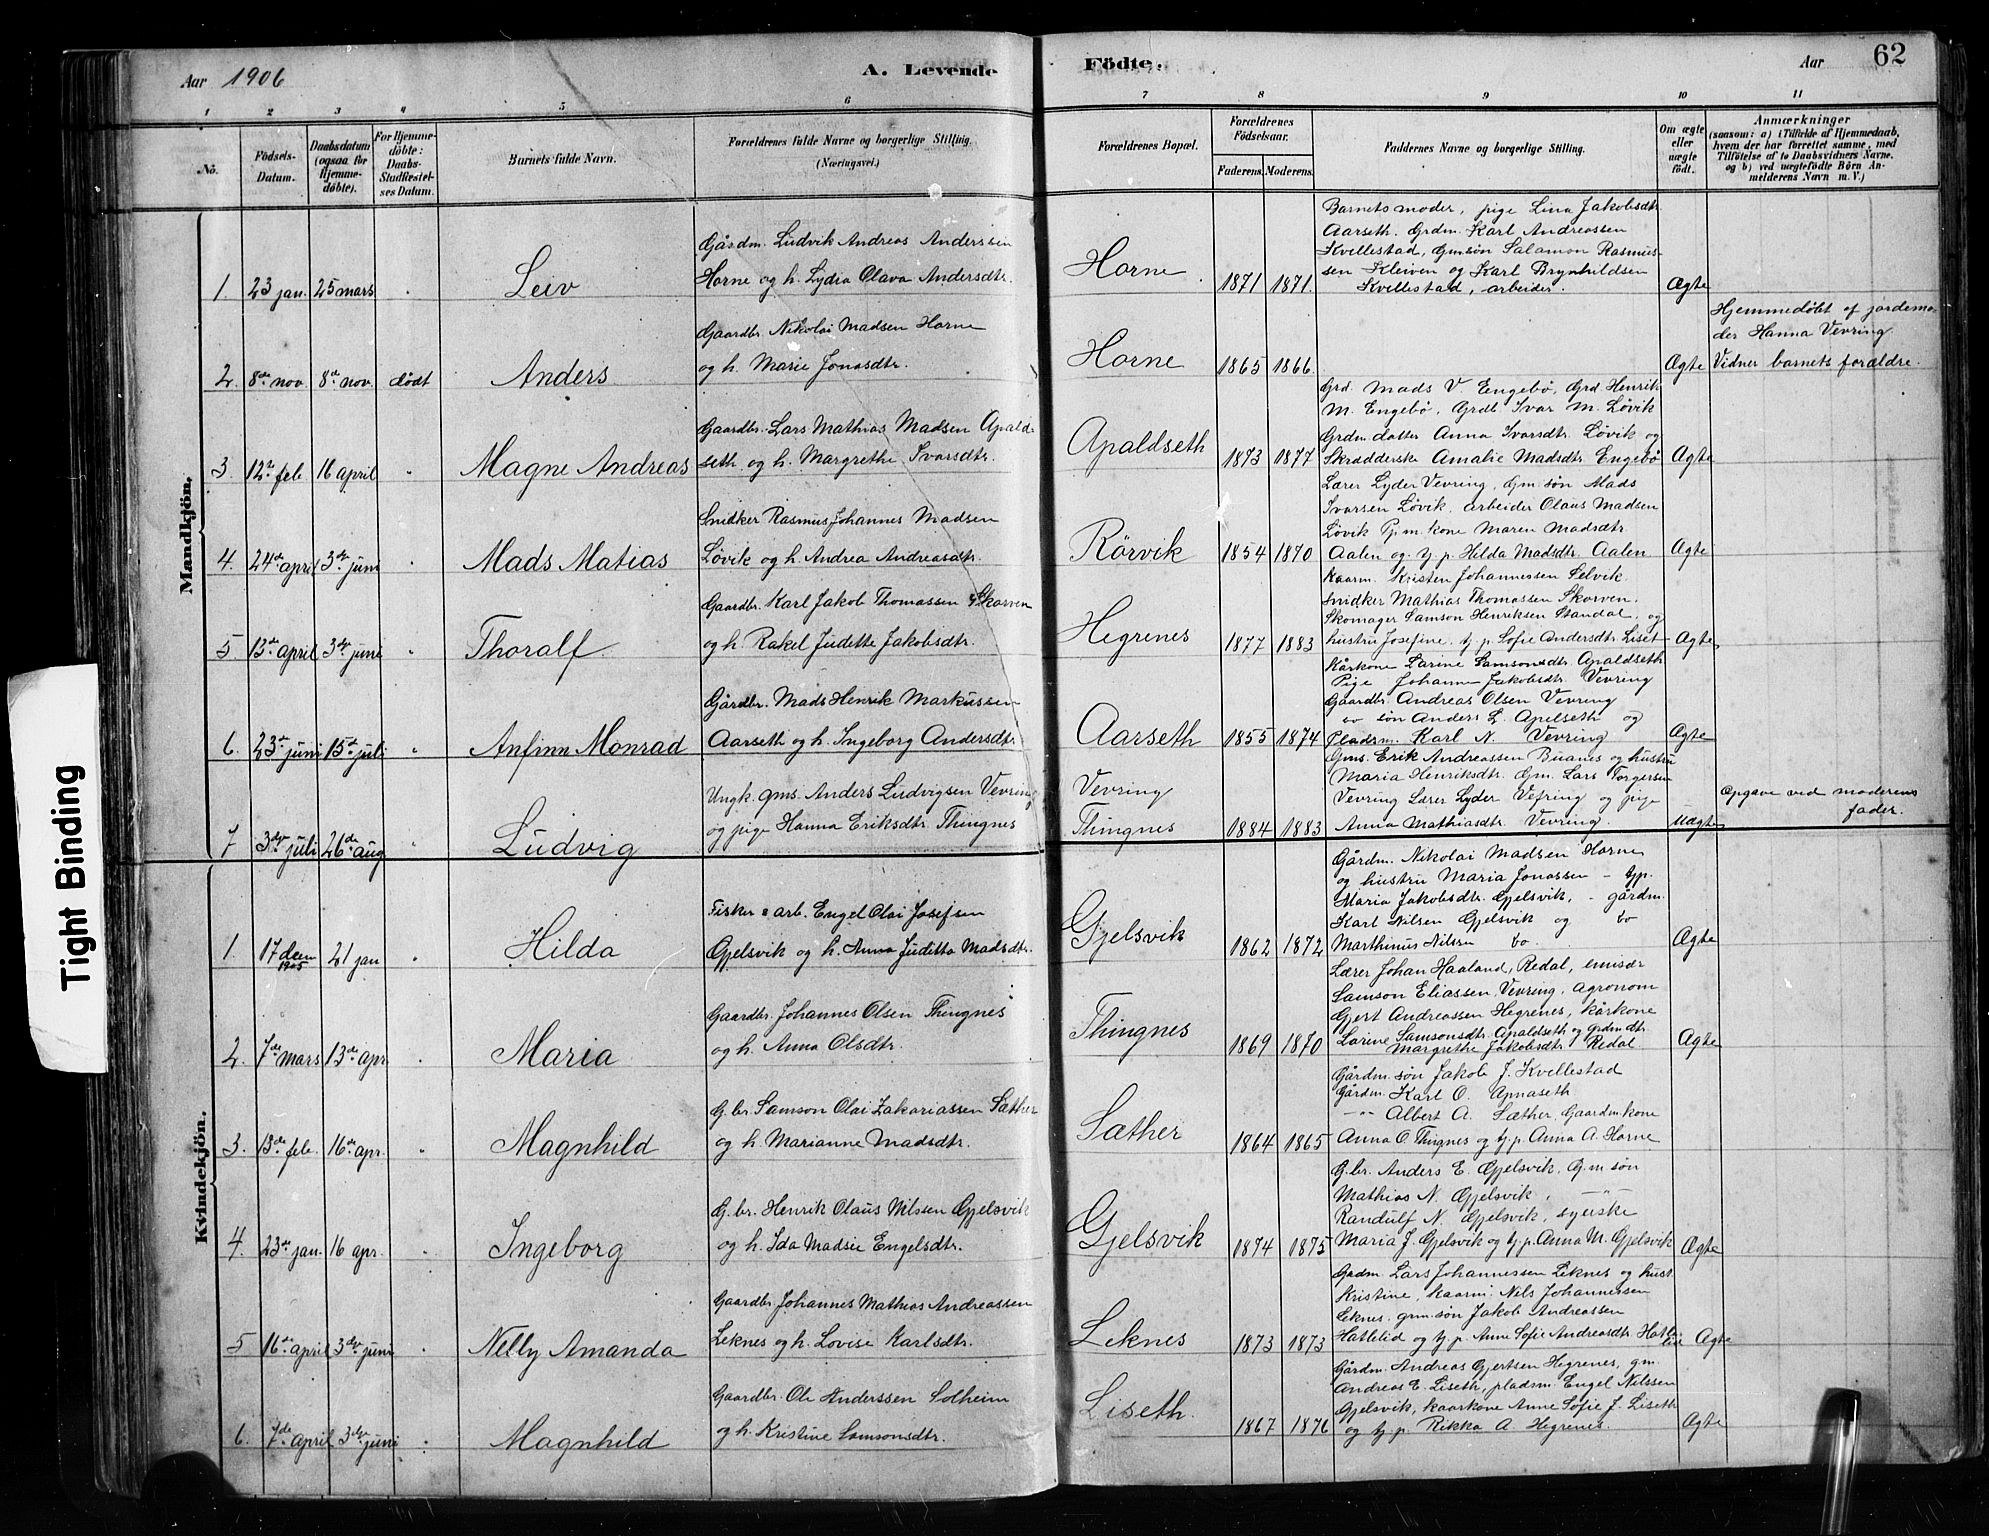 Aar 1906
A. Levende Födte.
Aar
62
1 2 3 4 5 6 7 8 9 10 11
No.
Födsels-Datum.
Daabsdatum (ogsaa for Hjemme-döbte).
For Hjemme-döbte: Daabs-Stadfæstel-ses Datum.
Barnets fulde Navn.
Forældrenes fulde Navne og borgerlige Stilling. (Næringsvei.)
Forældrenes Bopæl.
Forældrenes Födselsaar.
Faderens. Moderens.
Faddernes Navne og borgerlige Stilling.
Om ægte eller uægte født.
Anmærkninger
(saasom: a) i Tilfælde af Hjemmedaab,
hvem der har forrettet samme, med
Tilföielse af to Daabsvidners Navne,
og b) ved uægtefødte Börn An-
melderens Navn m. V.)
Mandkjön.
1. 23 jan. 25 mars
Leiv
Gårdm. Ludvik Andreas Anderssen
Horne og h. Lydia Olava Andersdtr.
Horne
1871 1871.
Barnets moder, pige Lina Jakobsdtr.
Aarseth. Grdm. Karl Andreassen
Kvellestad, Gmsøn Salamon Rasmus-
sen Kleiven og Karl Brynhildsen
Kvellestad, arbeider.
Ægte
2. 8de nov. 8de nov. dödt
Anders
Gaardbr. Nikolai Madsen Horne
og h. Marie Jonasdtr.
Horne
1865 1866
Ægte
Hjemmedøbt af jordemo-
der Hanna Vevring.
Vidner barnets forældre.
3. 12te feb. 16 april
Magne Andreas
Gaardbr. Lars Mathias Madsen Apald-
seth og h. Margrethe Ivarsdtr.
Apaldseth
1873 1877
Grd. Mads V Engebø, Grd Henrik
M. Engebø, Grdb Ivar M. Løvik
Grdm. datter Anna Ivarsdtr. Løvik og
Skrædderske Amalie Madsdtr. Engebø
Ægte
4. 24de april 3die juni
Mads Matias
Snidker Rasmus Johannes Madsen
Løvik og h. Andrea Andreasdtr.
Rörvik
1854 1870
Lærer Lyder Vevring, Gm søn Mads
Ivarsen Løvik, arbeider Olaus Madsen
Løvik Pj.m. kone Maren Madsdtr.
Aalen og tj. p. Hilda Madsdtr. Aalen
Ægte
5. 13de april 3die juni
Thoralf.
Gaardbr. Karl Jakob Thomassen Skorven
og h. Rakel Judette Jakobsdtr.
Hegrenes
1877 1883
Kaarm. Kristen Johannessen Selvik.
Snidker Mathias Thomassen Skorven.
Skomager Samson Henriksen Standal, og
hustru Josefine, tj. p. Sofie Andersdtr. Liset
Ægte
6. 23de juni 15de juli
Anfinn Monrad
Gårdbr. Mads Henrik Markussen
Aarseth og h. Ingeborg Andersdtr.
Aarseth
1855 1874
Kårkone Larine Samsonsdtr. Apaldseth
Pige Johanne Jakobsdtr. Vevring
Gaardbr. Andreas Olsen Vevring
do søn Anders L. Apelseth og
Pladsm. Karl N. Vevring
Ægte
7 3die juli 26de aug
Ludvig
Ungk. gms. Anders Ludvigsen Vevring
og pige Hanna Eriksdtr. Thingnes
Vevring
Thingnes
1884 1883
Gms. Erik Andreassen Buanes og hustru
Maria Henriksdtr. Gm. Lars Torgersen
Vevring Lærer Lyder Vefring og pige
Anna Mathiasdtr. Vevring.
Uægte
Opgave ved moderens
fader.
Kvindekjön.
1. 17 decm 1905 21 jan
Hilda
Fisker & arb. Engel Olai Josefsen
Gjelsvik og h. Anna Juditta Madsdtr.
Gjelsvik
1862 1872
Gårdm. Nikolai Madsen Horne
og hustru Maria Jonassen - tjp.
Maria Jakobsdtr. Gjelsvik, - gårdm.
Karl Nilsen Gjelsvik og do
Marthinus Nilsen do.
Ægte
2. 7de mars 13de apr.
Maria
Gaardbr. Johannes Olsen Thingnes
og h. Anna Olsdtr.
Thingnes
1869 1870
Lærer Johan Haaland, Redal, emisær
Samson Eliassen, Vevring, agronom
Gjert Andreassen Hegrenes, kårkone
Larine Samsonsdtr. Apaldseth og grdm dtr.
Margrethe Jakobsdtr. Redal
Ægte
3. 13de feb. 16de apr.
Magnhild
G. br. Samson Olai Zakariassen Sæther
og h. Marianne Madsdtr.
Sæther
1864 1865
Gårdm. søn Jakob J. Kvellestad
Gårdm. Karl O. Apnaseth
-"- Albert A. Sæther, Gaardm. kone
Anna O. Thingnes og tj. p. Anna A. Horne
4. 23de jan. 16 apr.
Ingeborg
G. br. Henrik Olaus Nilssen Gjelsvik
og h. Ida Madsie Engelsdtr.
Gjelsvik
1874 1875
G. br. Anders E. Gjelsvik, G. m søn
Mathias N. Gjelsvik, -"-
Randulf N. Gjelsvik, syerske
Maria J. Gjelsvik og tj. p. Anna M. Gjelsvik
Ægte
5 16de april 3die juni
Nelly Amanda
Gaardbr. Johannes Mathias Andreassen
Leknes og h. Lovise Karlsdtr.
Leknes
1873 1873
Grdm. Lars Johannessen Leknes og hust.
Kristine, kaarm. Nils Johannessen
Leknes, grm. søn Jakob Andreassen
Hatlelid og tj. p. Anne Sofie Andreasdtr. Hatle-
lid
Ægte
6. 7de april 3die juni
Magnhild
Gaardbr. Ole Anderssen Solheim
og h. Kristine Samsonsdtr.
Liseth.
1867 1876
Gårdm. Andreas Gjertsen Hegrenes, gm.
Andreas E. Liseth, pladsm. Engel Nilssen
Gjelsvik, kaarkone Anne Sofie J. Liseth
og tj. p. Rikka A. Hegrenes.
Ægte
Tight Binding